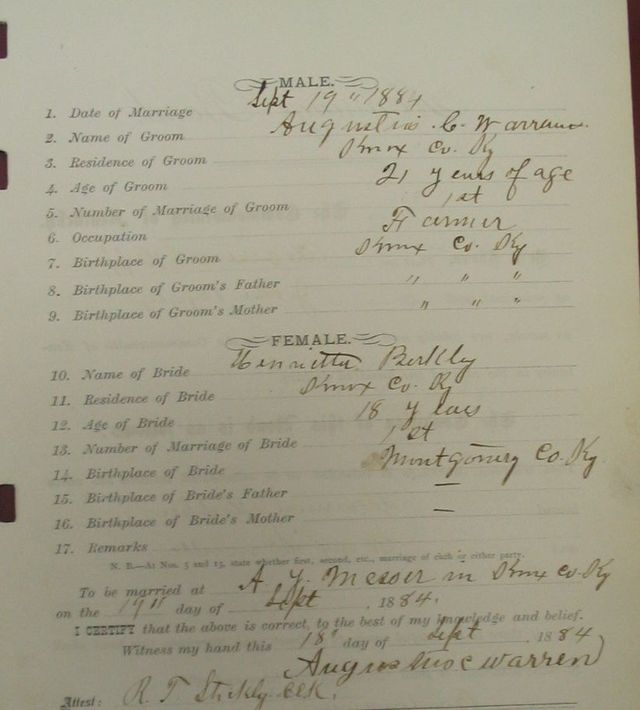 MALE.
1. Date of Marriage Sept 19" 1884
2. Name of Groom Augustus C. Warren
3. Residence of Groom Knox Co. Ky
4. Age of Groom 21 years of age
5. Number of Marriage of Groom 1st
6. Occupation Farmer
7. Birthplace of Groom Knox Co. Ky
8. Birthplace of Groom's Father " " "
9. Birthplace of Groom's Mother " " "
FEMALE.
10. Name of Bride Henrietta Berkley
11. Residence of Bride Knox Co. Ky
12. Age of Bride 18 years
13. Number of Marriage of Bride 1st
14. Birthplace of Bride Montgomery Co. Ky.
15. Birthplace of Bride's Father —
16. Birthplace of Bride's Mother —
17. Remarks
N. B.—At Nos. 5 and 13, state whether first, second, etc., marriage of each or either party.
To be married at A. J. Messer in Knox Co. Ky
on the 19" day of Sept, 1884.
I CERTIFY that the above is correct, to the best of my knowledge and belief.
Witness my hand this 18" day of Sept, 1884
Augustus C Warren
Attest: R. T. Stickly clk.